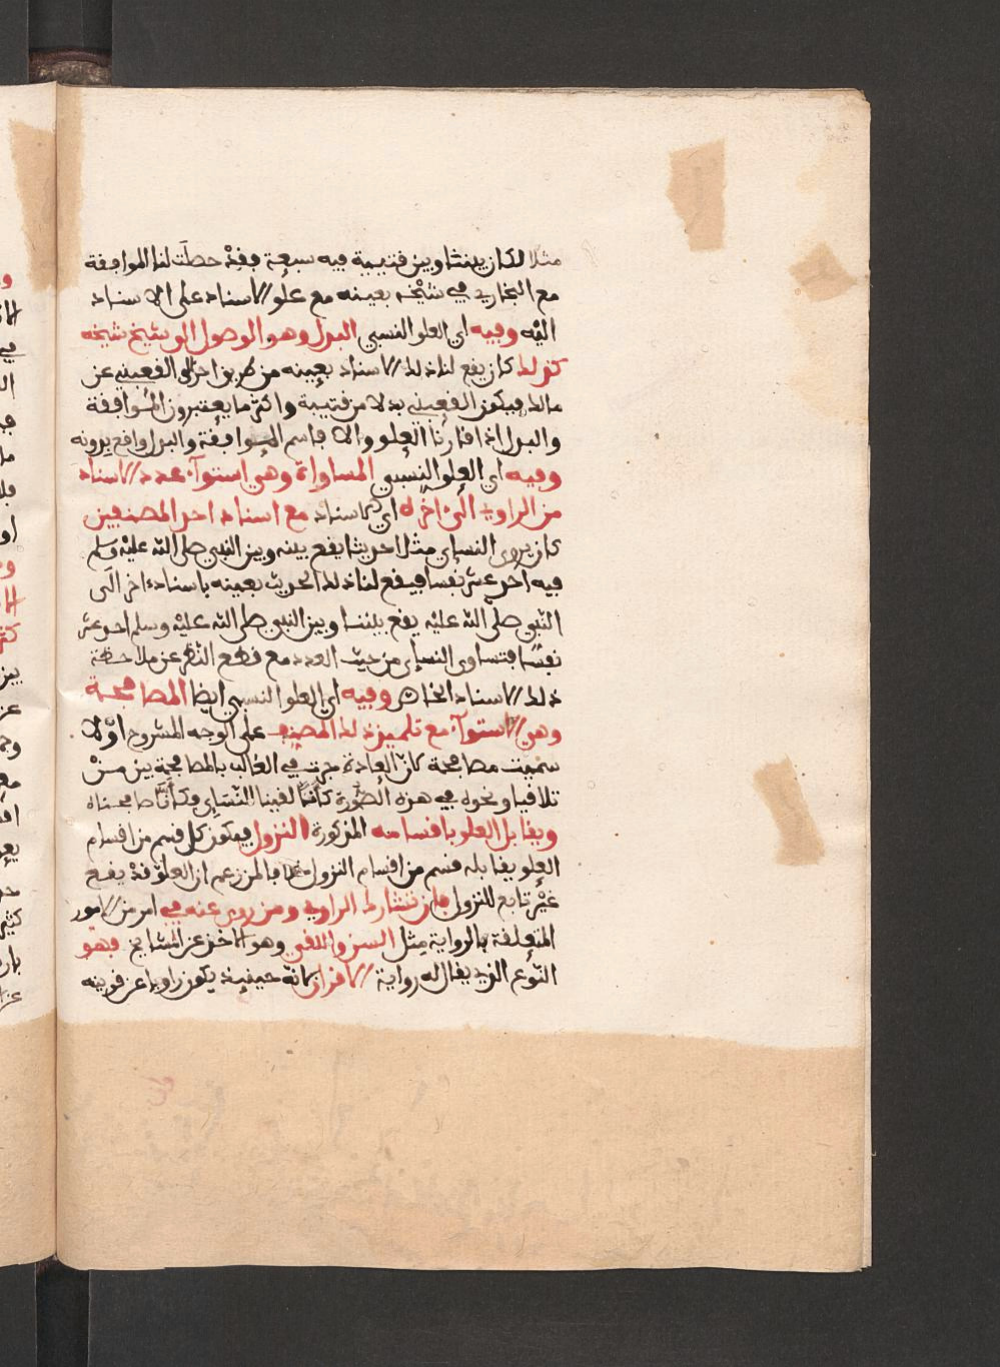 مثلا لكان بيننا وبين قتيبة فيه سبعة فقد حصلت لنا الموافقة
مع البخاري في شيخه بعينه مع علو الاسناد على الاسناد
اليه وفيه اي العلو النسبي البدل وهو الوصول الى شيخ شيخه
كذلك كان يقع لنا ذلك الاسناد بعينه من طريق اخرى الى القعنبي عن
مالك فيكون القعنبي بدلا من قتيبة واكثر ما يعتبرون الموافقة
والبدل اذا قارنا العلو والا فاسم الموافقة والبدل واقع بدونه
وفيه اي العلو النسبي المساواة وهي استوآء عدد الاسناد
من الراوي الى اخره اي الاسناد مع اسناد احد المصنفين
كان يروي النساي مثلا حديثا يقع بينه وبين النبي صلى الله عليه وسلم
فيه احد عشر نفسا فيقع لنا ذلك الحديث بعينه باسناد اخر الى
النبي صلى الله عليه يقع بيننا وبين النبي صلى الله عليه وسلم احد عشر
نفسا فنساوي النساي من حيث العدد مع قطع النظر عن ملاحظة
ذلك الاسناد الخاص وفيه اي العلو النسبي ايضا المصافحة
وهي الاستوآء مع تلميذ ذلك المصنف على الوجه المشروح اولا
سميت مصافحة لان العادة جرت في الغالب بالمصافحة بين من
تلاقيا ونحن في هذه الصورة كانا لقينا النساي فكانا صافحناه
ويقابل العلو باقسامه المذكورة النزول فيكون كل قسم من اقسام
العلو يقابله قسم من اقسام النزول خلافا لمن زعم ان العلو قد يقع
غير تابع للنزول فان تشارك الراوي ومن روى عنه في امر من الامور
المتعلقة بالرواية مثل السن واللقي وهو الاخذ عن المشايخ فهو
النوع الذي يقال له رواية الاقران لانه حينيذ يكون راويا عن قرينه